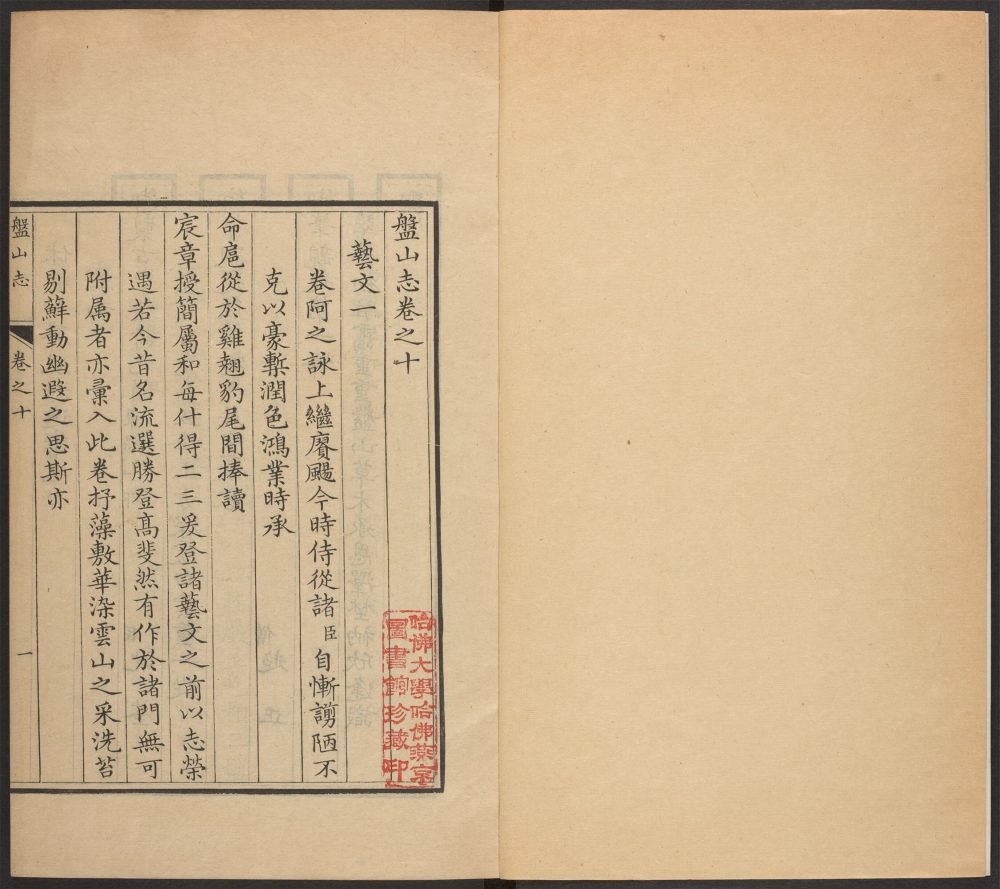 盤山志卷之十
藝文一
卷阿之詠上繼賡颺今時侍從諸臣自慚謭陋不
克以豪槧潤色鴻業時承
命扈從於雞翹豹尾間捧讀
宸章授簡屬和每什得二三爰登諸藝文之前以志榮
遇若今昔名流選勝登高斐然有作於諸門無可
附属者亦彙入此卷抒藻敷華染雲山之采洗苔
剔蘚動幽遐之思斯亦
盤山志
卷之十
一
哈佛大學哈佛燕京
圖書館珍藏印